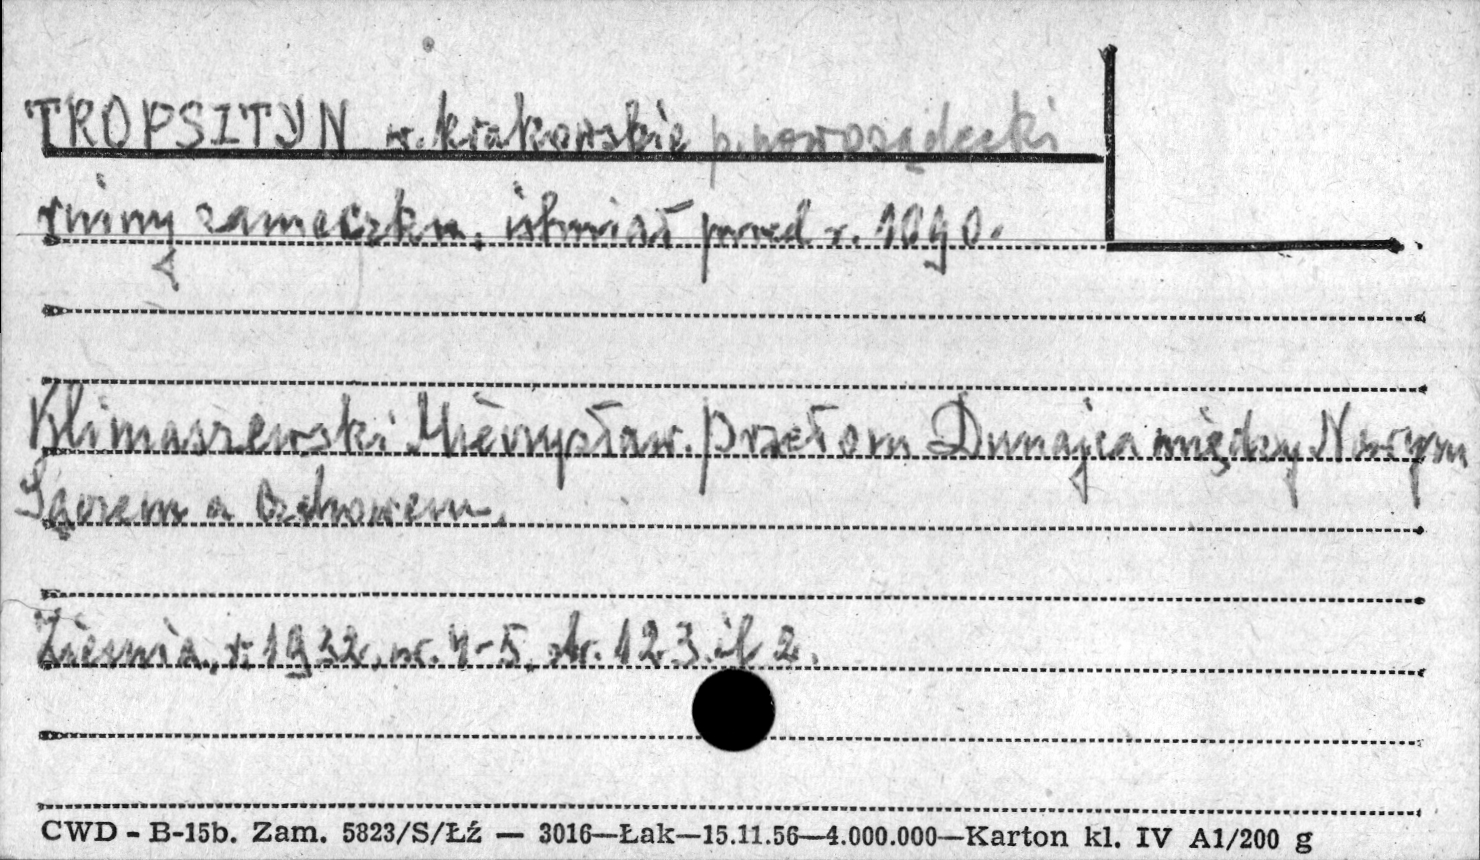 TROPSZTYN w. krakowskie p. nowosądecki
ruiny zameczku, istniał przed r. 1090.
Klimaszewski Mieczysław. Przełom Dunajca między Nowym
Sączem a Czchowem.
Ziemia, r. 1932, nr. 4-5, str. 123. il 2.
CWD - B-15b. Zam. 5823/S/Łź — 3016—Łak—15.11.56—4.000.000—Karton kl. IV A1/200 g